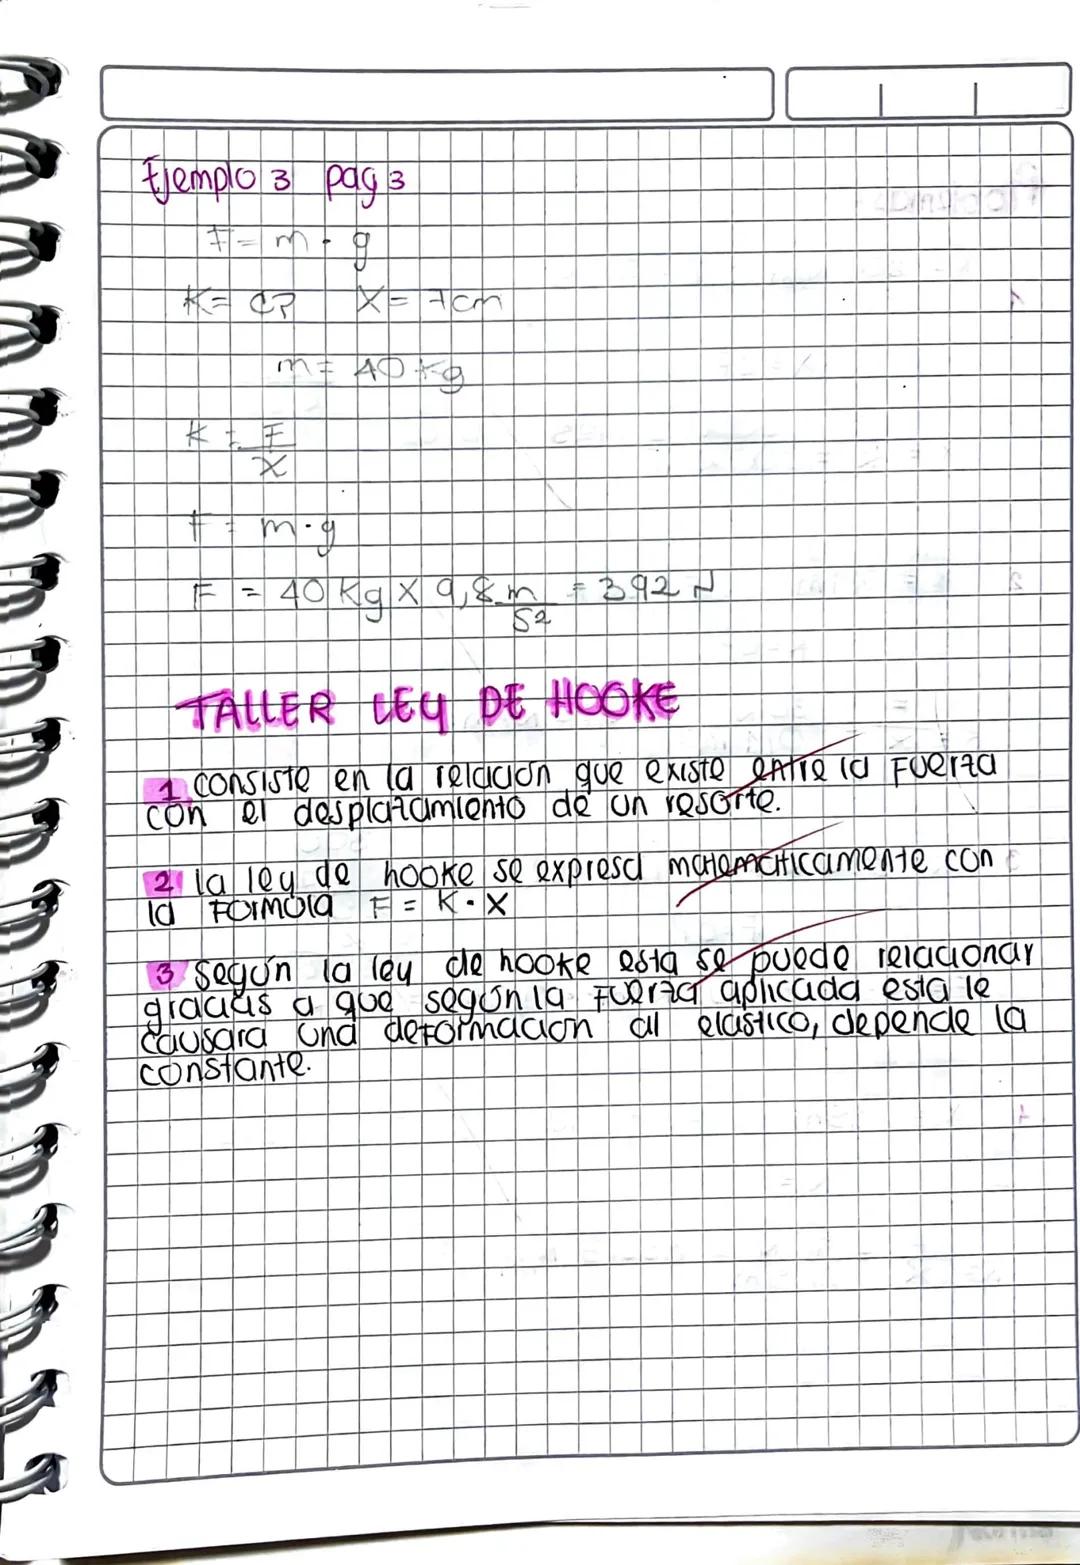 Ejemplo 3 pag 3
F = m · g
K = c? X = 7cm
m = 40 kg
K = F/X
F = m · g
F = 40 Kg X 9,8 m/s² = 392 N
TALLER LEY DE HOOKE
1 consiste en la relación que existe entre la Fuerza
con el desplazamiento de un resorte.
2 la ley de hooke se expresa matematicamente con
la Formula F = K · X
3 Según la ley de hooke esta se puede relacionar
gracias a que según la Fuerza aplicada esta le
causara una deformacion al elastico, depende la
constante.